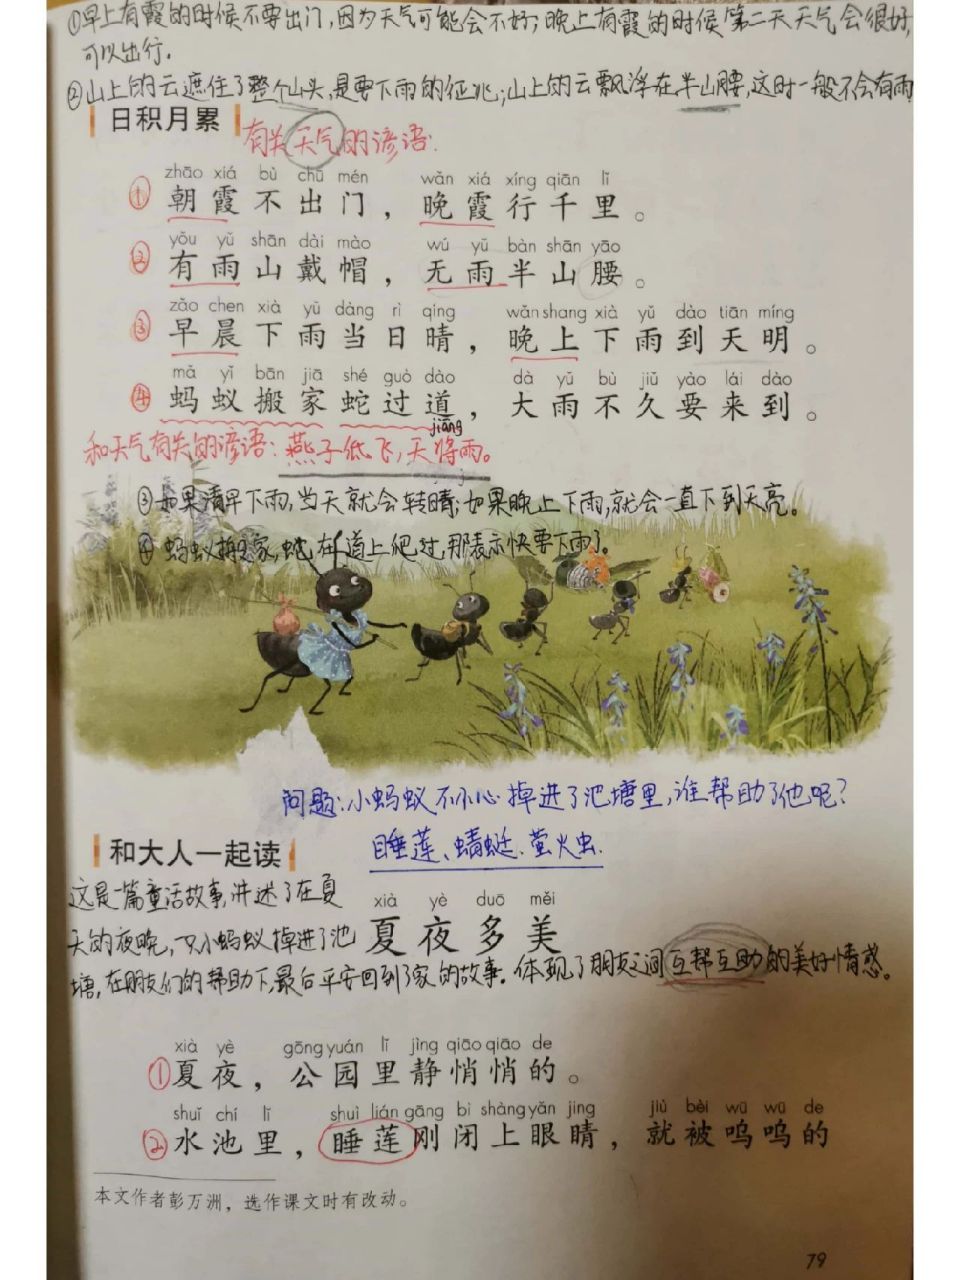 ①早上有霞的时候不要出门,因为天气可能会不好;晚上有霞的时候第二天天气会很好,
可以出行.
②山上的云遮住了整个山头,是要下雨的征兆;山上的云飘浮在半山腰,这时一般不会有雨
日积月累
有关天气的谚语:
zhāo xiá bù chū mén wǎn xiá xíng qiān lǐ
① 朝霞不出门，晚霞行千里。
yǒu yǔ shān dài mào wú yǔ bàn shān yāo
② 有雨山戴帽，无雨半山腰。
zǎo chen xià yǔ dàng rì qíng wǎn shang xià yǔ dào tiān míng
③ 早晨下雨当日晴，晚上下雨到天明。
mǎ yǐ bān jiā shé guò dào dà yǔ bù jiǔ yào lái dào
④ 蚂蚁搬家蛇过道，大雨不久要来到。
jiāng
和天气有关的谚语:燕子低飞,天将雨。
③如果清早下雨,当天就会转晴;如果晚上下雨,就会一直下到天亮。
④蚂蚁搬家,蛇在道上爬过,那表示快要下雨了。
问题:小蚂蚁不小心掉进了池塘里,谁帮助了他呢?
睡莲、蜻蜓.萤火虫.
和大人一起读
这是一篇童话故事,讲述了在夏
xià yè duō měi
夏夜多美
天的夜晚,一只小蚂蚁掉进了池
塘,在朋友们的帮助下,最后平安回到了家的故事.体现了朋友之间互帮互助的美好情感。
xià yè gōng yuán lǐ jìng qiāo qiāo de
①夏夜，公园里静悄悄的。
shuǐ chí lǐ shuì lián gāng bì shàng yǎn jing jiù bèi wū wū de
②水池里，睡莲刚闭上眼睛，就被呜呜的
本文作者彭万洲，选作课文时有改动。
79